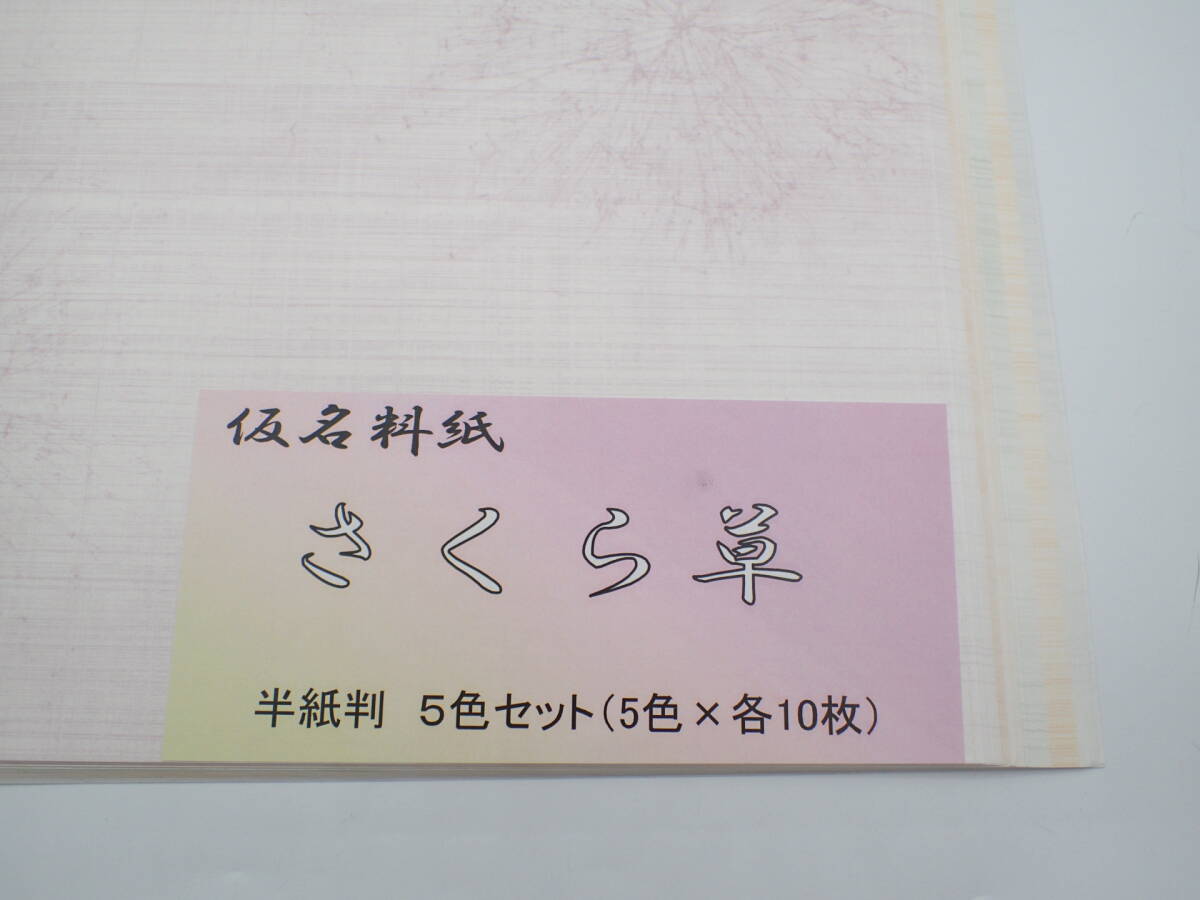 仮名料紙
さくら草
半紙判　５色セット（5色×各10枚）